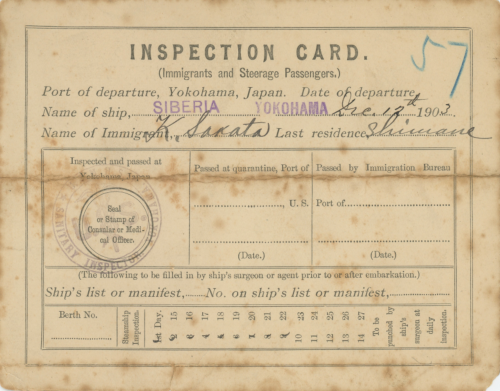 57
INSPECTION CARD.
(Immigrants and Steerage Passengers.)
Port of departure, Yokohama, Japan. Date of departure,
Name of ship, SIBERIA YOKOHAMA Dec. 12th 1903.
Name of Immigrant, K. Last residence, Shimane
Inspected and passed at
Yokohama, Japan.
Seal
or Stamp of
Consular or Medi-
cal Officer.
SANITARY INSPECTOR
Passed at quarantine, Port of
, U. S.
(Date.)
Passed by Immigration Bureau
Port of
(Date.)
(The following to be filled in by ship's surgeon or agent prior to or after embarkation.)
Ship's list or manifest, No. on ship's list or manifest,
Berth No.
Steamship
Inspection.
1st Day.
2 15
3 16
4 17
5 18
6 19
7 20
8 21
9 22
10 23
11 24
12 25
13 26
14 27
To be
punched by
ship's
surgeon at
daily
inspection.